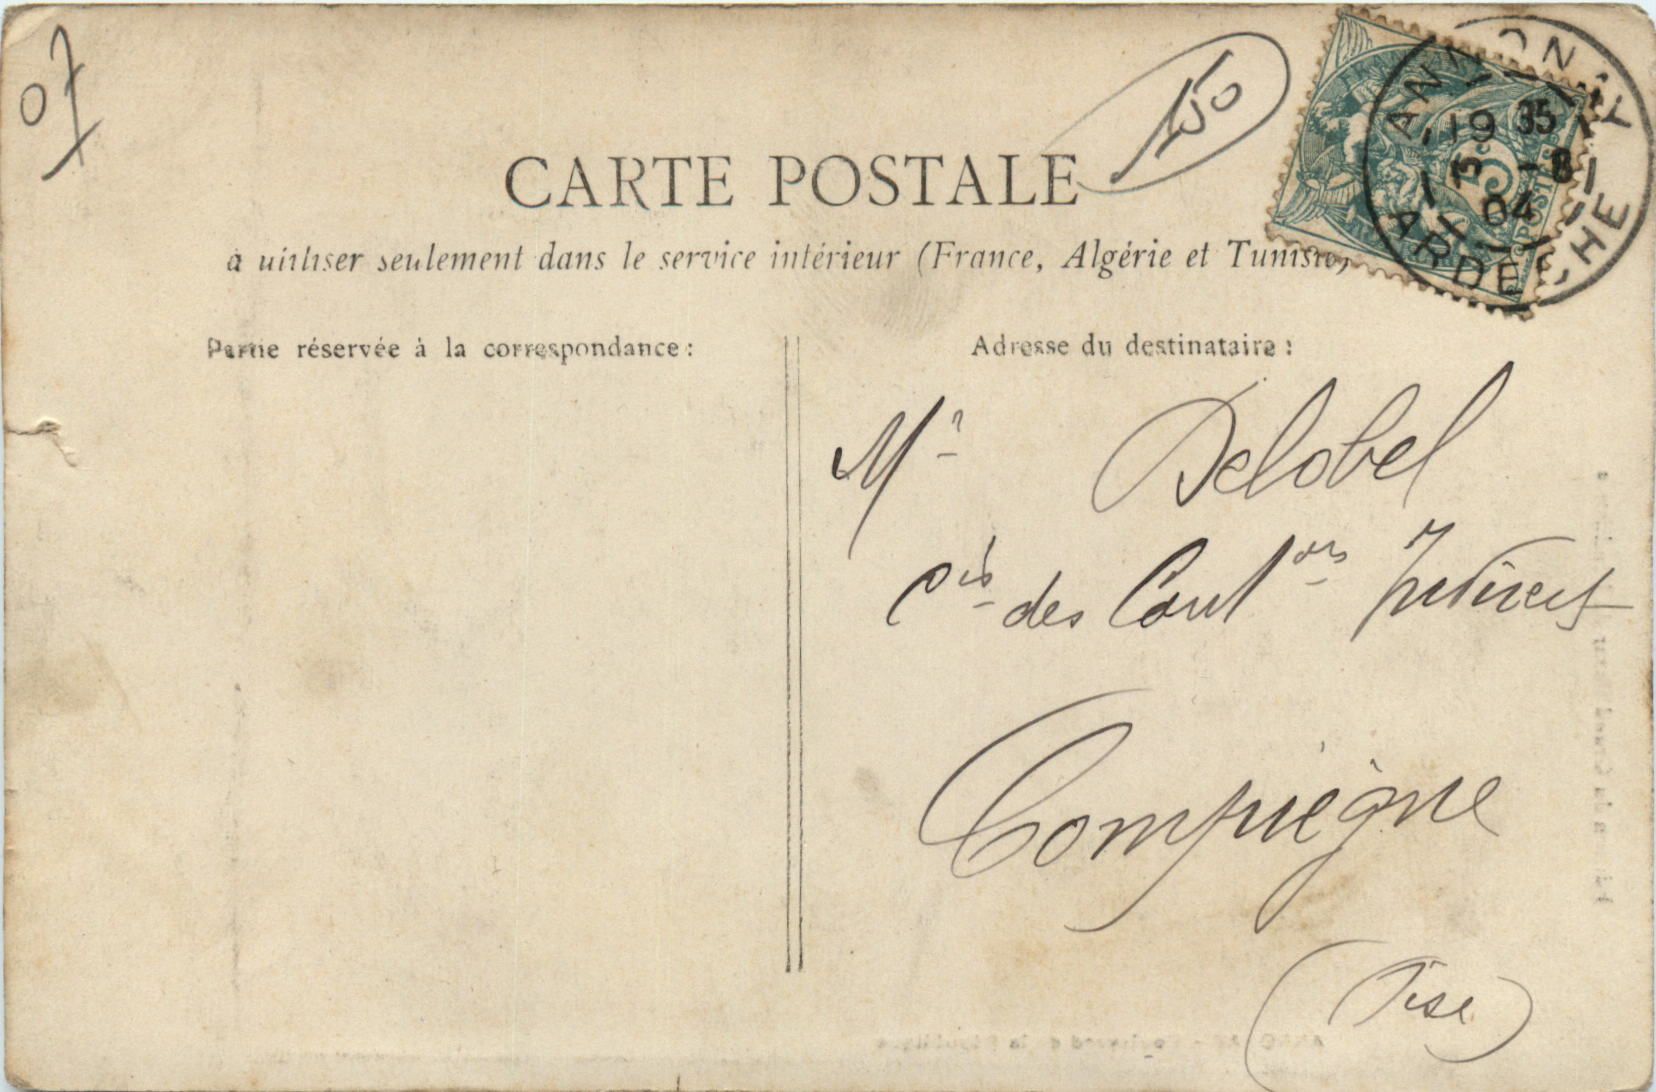 07
150
CARTE POSTALE
à utiliser seulement dans le service intérieur (France, Algérie et Tunisie)
ANNONAY
19 35
5 -8
04
ARDECHE
5
Partie réservée à la correspondance:
Adresse du destinataire:
Mr Delobel
Cis des Contons Indirects
Compiègne
(Oise)